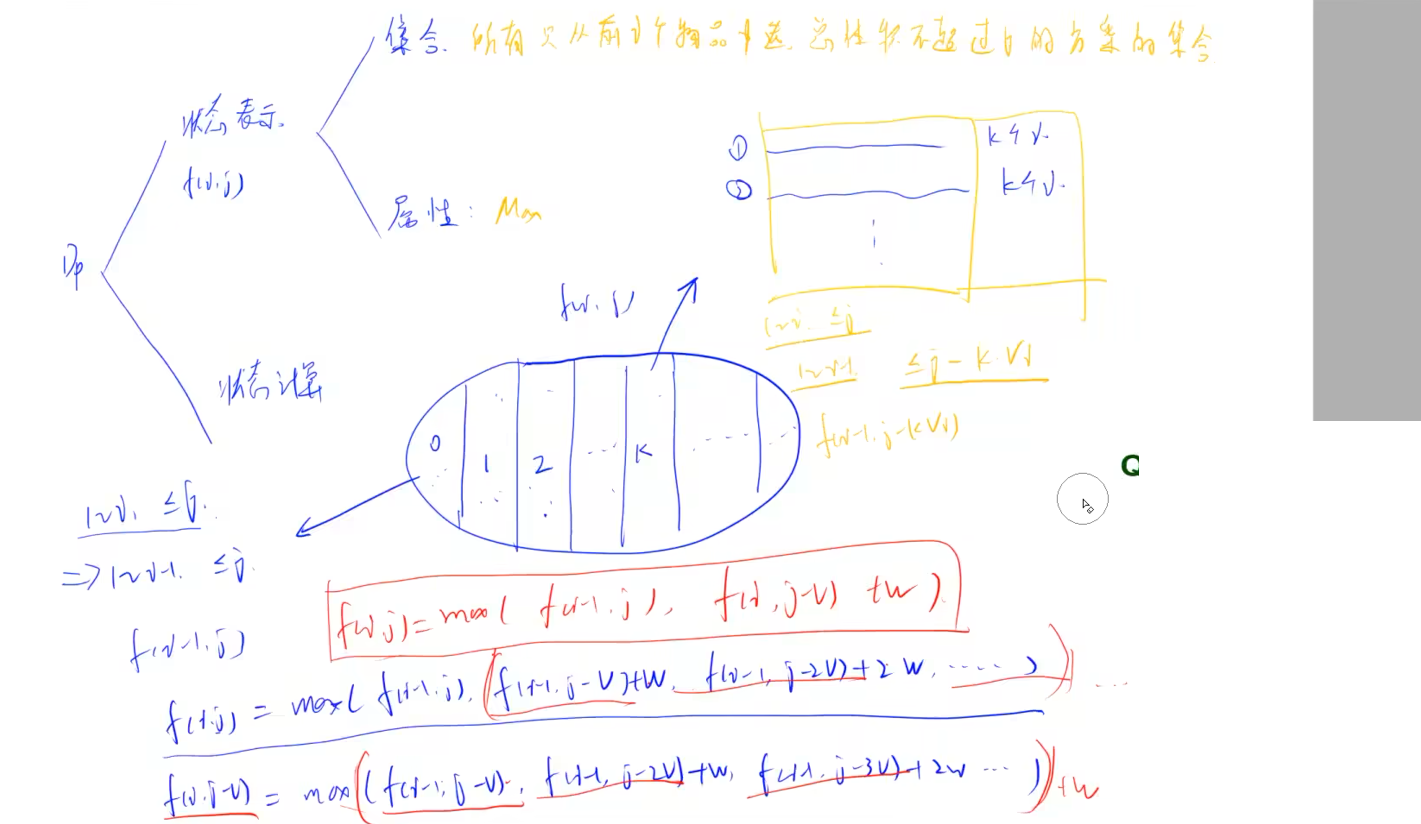 集合. 所有只从前i个物品中选, 总体积不超过j的方案的集合
状态表示.
f(i,j)
属性: Max
Dp
状态计算
① k个i.
② k个i.
f(i,j)
1~i. ≤j
1~i-1. ≤j - k·Vi
f(i-1, j-kVi)
0 1 2 ... K ......
1~i, ≤j.
=> 1~i-1. ≤j.
f(i-1,j)
f(i,j) = max( f(i-1,j), f(i,j-V) +W ).
f(i,j) = max( f(i-1,j), (f(i-1,j-V)+W, f(i-1,j-2V)+2W, ..... ) ) ...
f(i,j-V) = max( (f(i-1,j-V), f(i-1,j-2V)+W, f(i-1,j-3V)+2W ... ) )+W
Q